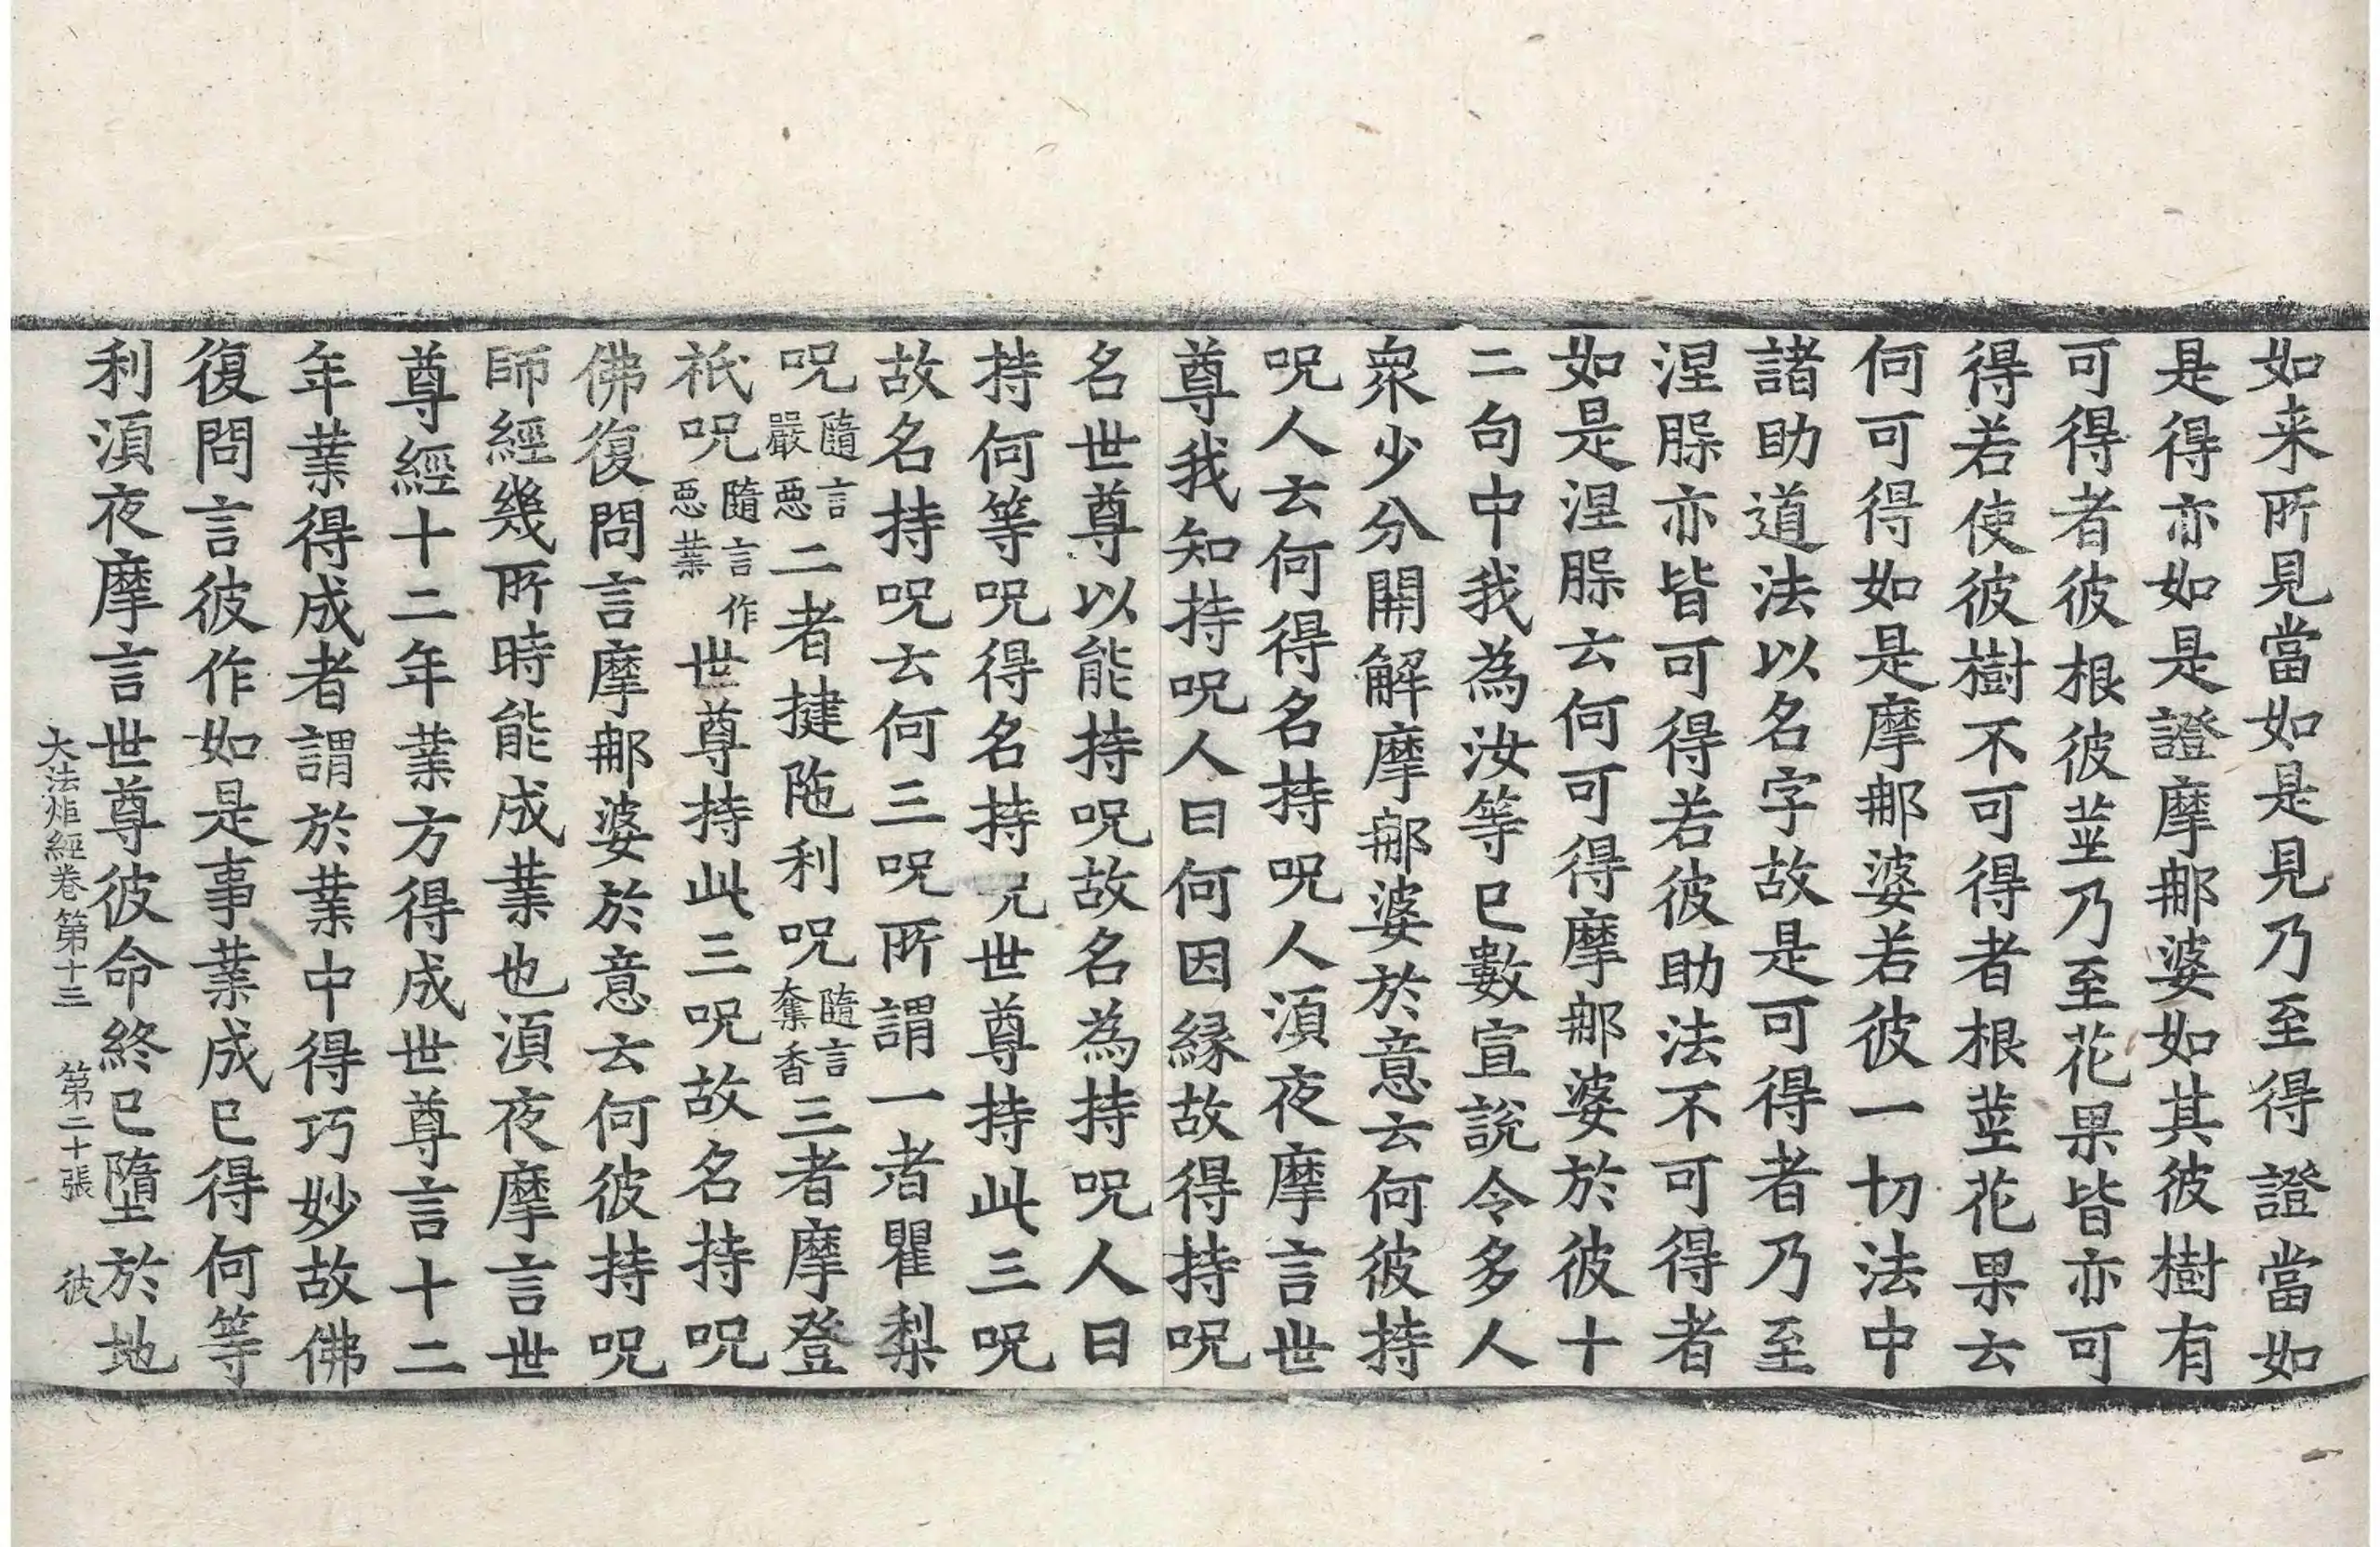 如来所見當如是見乃至得證當如
是得亦如是證摩㖠婆如其彼樹有
可得者彼根彼莖乃至花果皆亦可
得若使彼樹不可得者根莖花果云
何可得如是摩㖠婆若彼一切法中
諸助道法以名字故是可得者乃至
涅槃亦皆可得若彼助法不可得者
如是涅槃云何可得摩㖠婆於彼十
二句中我為汝等已數宣說令多人
衆少分開解摩㖠婆於意云何彼持
呪人云何得名持呪人湏夜摩言世
尊我知持呪人曰何因緣故得持呪
名世尊以能持呪故名為持呪人曰
持何等呪得名持呪世尊持此三呪
故名持呪云何三呪所謂一者瞿梨
呪隨言嚴惡二者揵陁利呪隨言奪香三者摩登
祇呪隨言作惡業世尊持此三呪故名持呪
佛復問言摩㖠婆於意云何彼持呪
師經幾所時能成業也湏夜摩言世
尊經十二年業方得成世尊言十二
年業得成者謂於業中得巧妙故佛
復問言彼作如是事業成已得何等
利湏夜摩言世尊彼命終已墮於地
大法炬經卷第十三　第二十張　彼